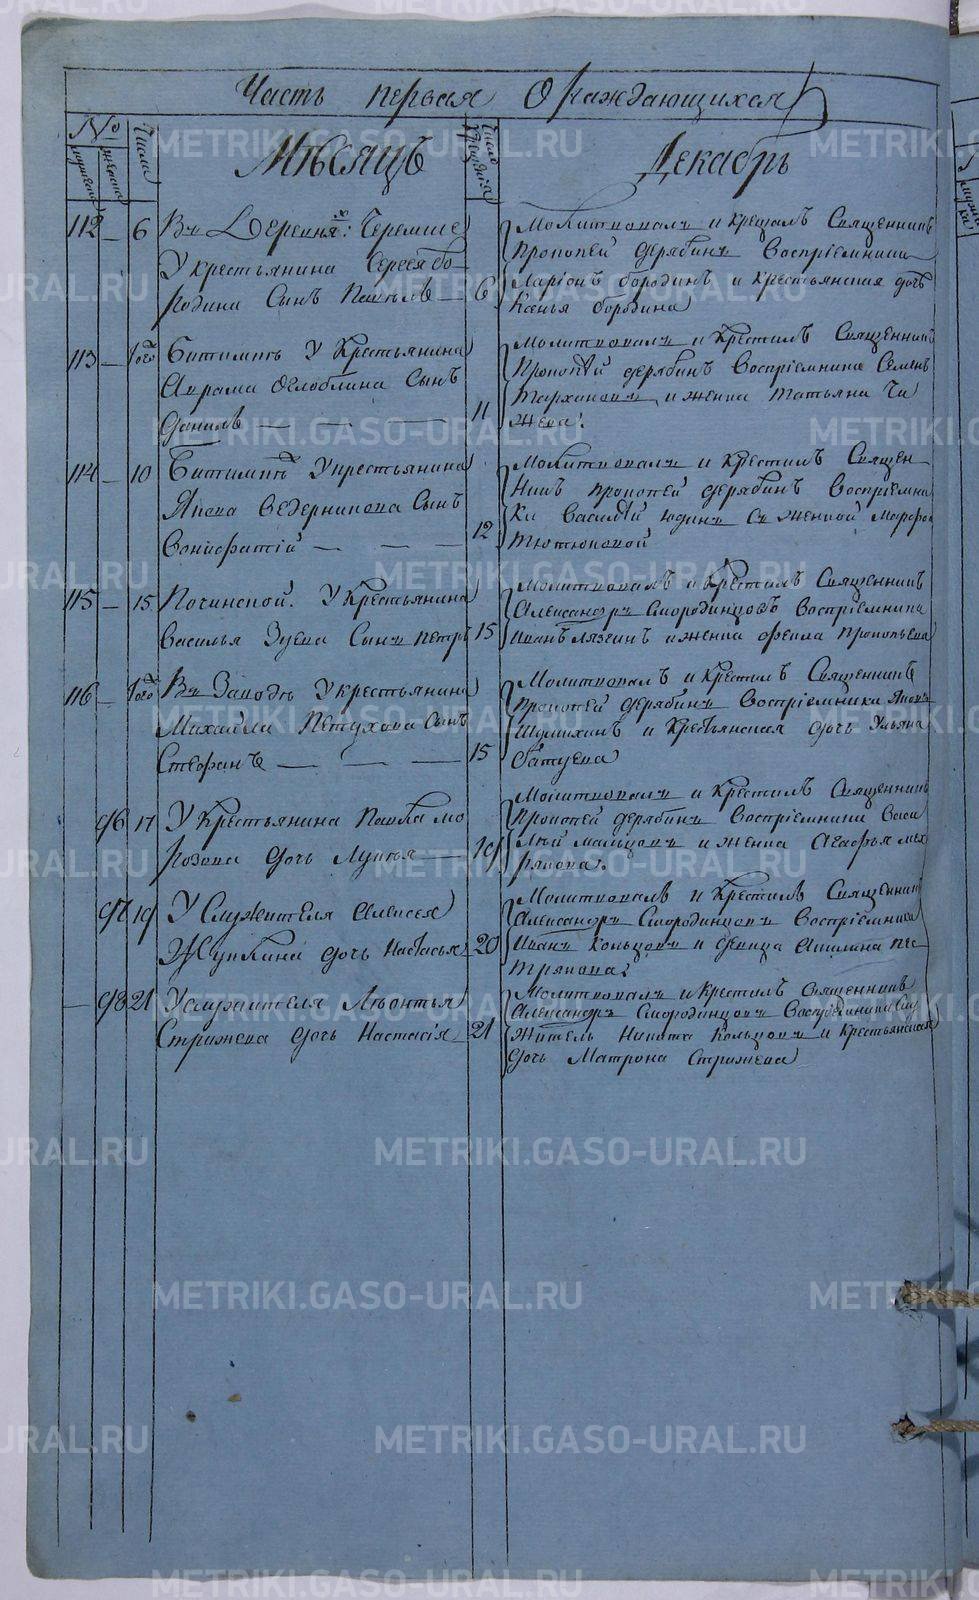 Часть первая О раждающихся
No
мужеска
женска
Числа
Мѣсяцъ
Число крещенія
Декабрь
112 — 6 Въ Деревнях: Черемше
У крестьянина Сергея бо-
родина Сынъ Павелъ — 6
Молитвовалъ и крещалъ Священникъ
Прокопей дерябинъ Воспріемники
Ларіонъ бородинъ и крестьянская дочь
Ксенья бородина
113 — того Битимкѣ У Крестьянина
Аврама Оглоблина Сынъ
Данилъ — — — 11
Молитвовалъ и Крестилъ Священникъ
Прокопей дерябинъ Воспріемники Семенъ
Тарханов и женка Татьяна Чи
жева:
114 — 10 Битимкѣ У крестьянина
Якова Ведерникова Сынъ
Вонифатій — — — 12
Молитвовалъ и Крестилъ Священ
никъ Прокопей дерябинъ Воспріемни
ки Василій юдинъ съ женкой Марфой
Тютюковой
115 — 15 Починской. У Крестьянина
Василья Зуева Сынъ Петръ 15
Молитвовалъ и Крестилъ Священникъ
Александръ Смородинцовъ Воспріемники
Иванъ лязгинъ и женка Фекла Прокопьева
116 — того Въ Заводѣ У крестьянина
Михайла Петухова Сынъ
Стефанъ — — — 15
Молитвовалъ и Крестилъ Священникъ
Прокопей Дерябинъ Воспріемники Яковъ
Шумихинъ и Крестьянская дочь Ульяна
Гатуева
96 17 У Крестьянина Павла мо
розова дочь Лукья — 19
Молитвовалъ и Крестилъ Священникъ
Прокопей дерябинъ Воспріемники Васи
лей мальцовъ и женка Агафья мех
рякова.
97 19 У Служителя Алексея
Жупкина дочь Настасья 20
Молитвовалъ и Крестилъ Священникъ
Александръ Смородинцовъ Воспріемники
Иванъ Кольцовъ и девица Акилина пес
трякова
— 98 21 У служителя Леонтья
Стрижева дочь Настасія 21
Молитвовалъ и крестилъ Священникъ
Александръ Смородинцовъ Воспріемники Слу
житель Никита Кольцовъ и Крестьянская
дочь Матрона Стрижева
METRIKI.GASO-URAL.RU